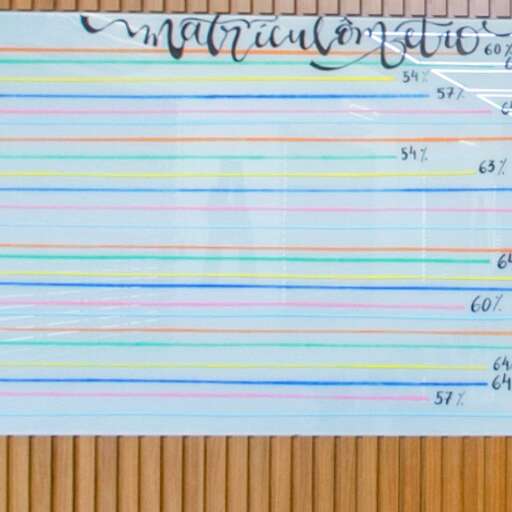 matriculômetro
60%
54%
57%
54%
63%
64
60%
64
64
57%